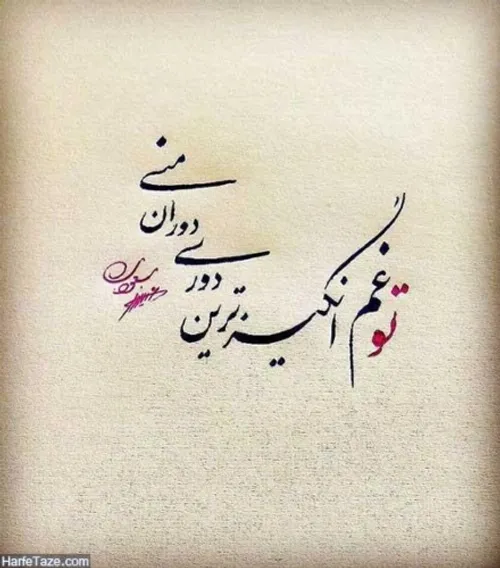 تو غم انگیز ترین
دوری
دوران
منی
HarfeTaze.com